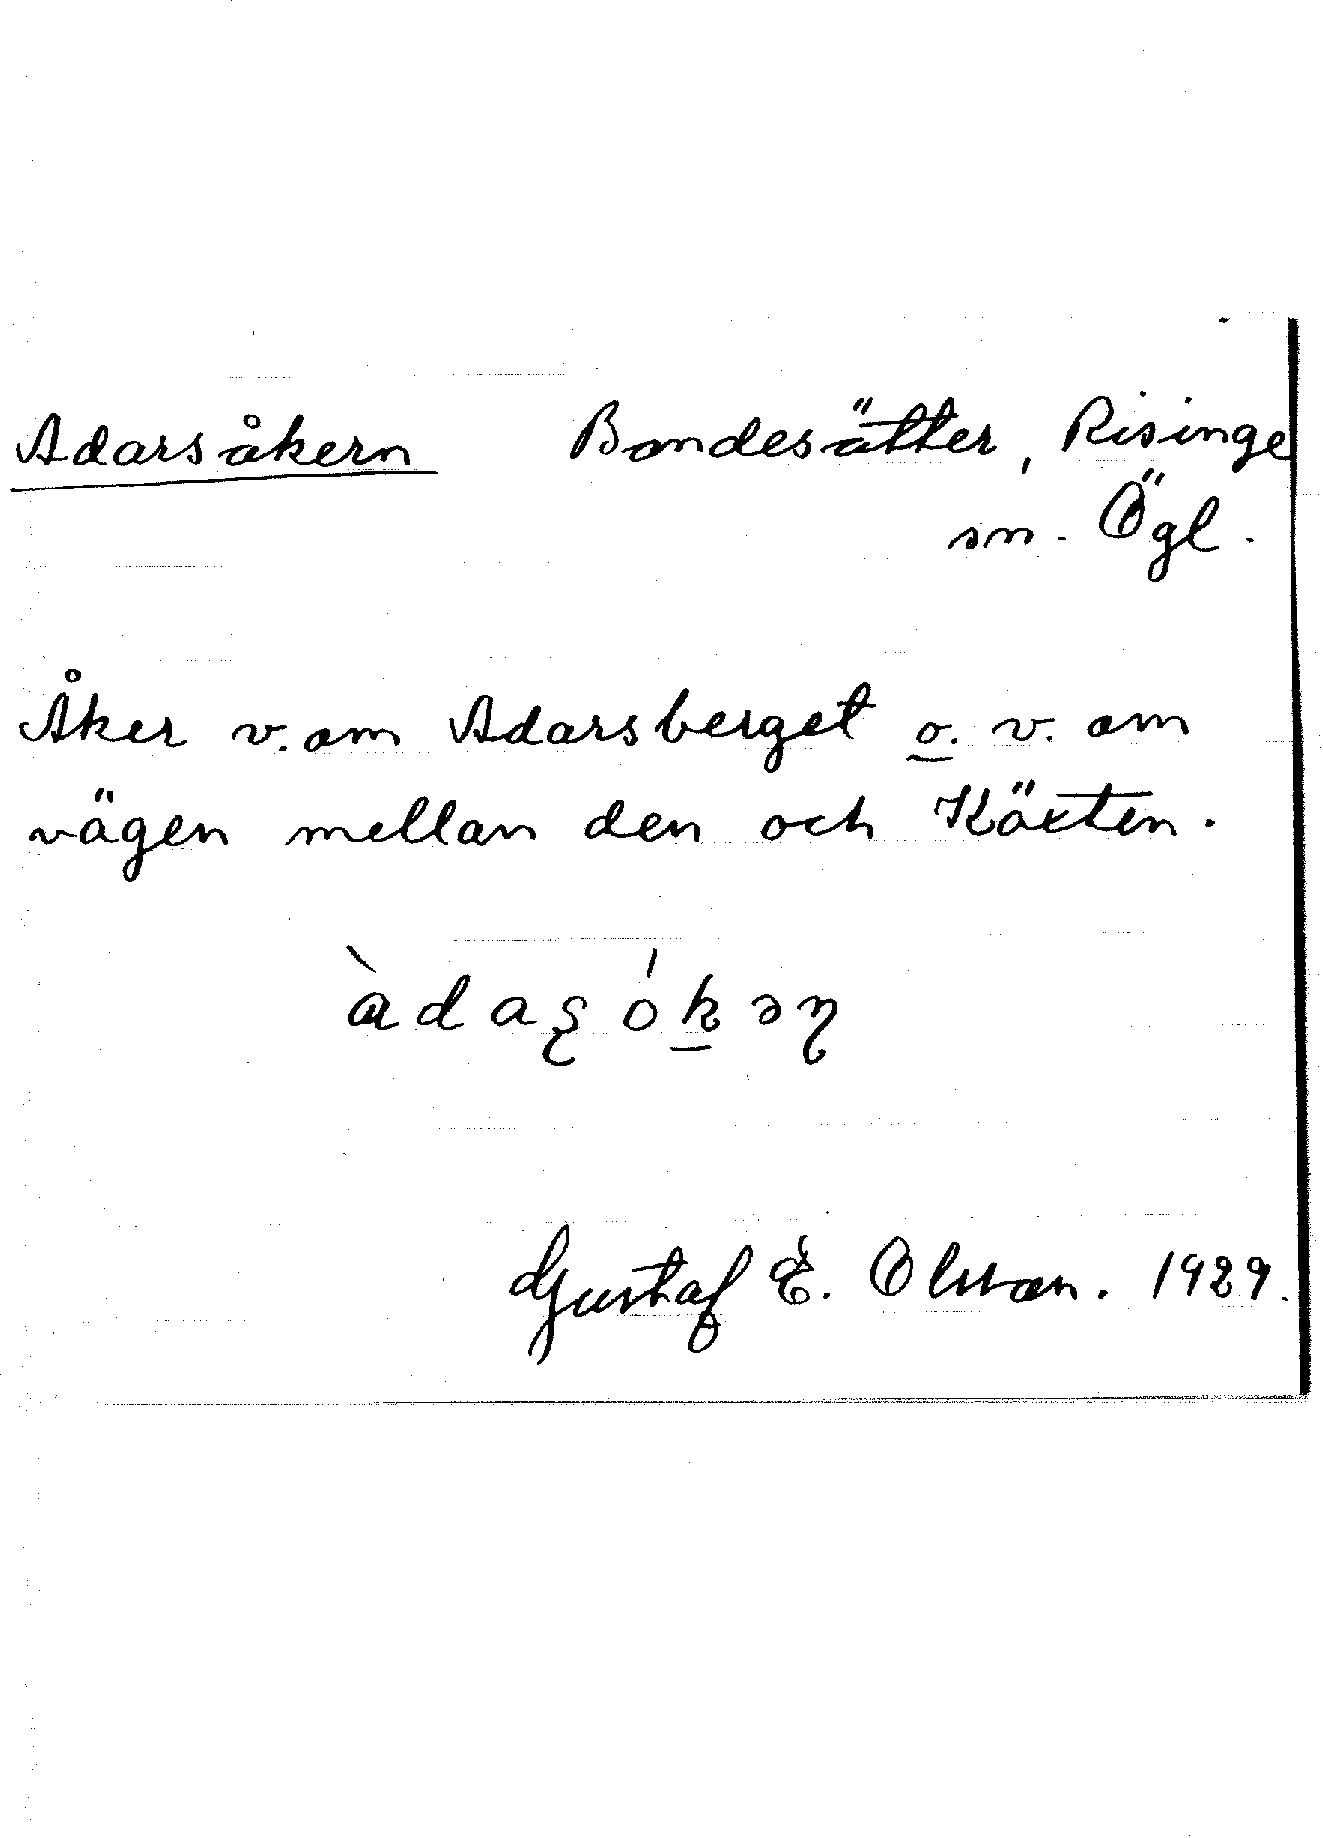 Adarsåkern Bondesätter, Risinge
sn. Ögl.
Åker v. om Adarsberget o. v. om
vägen mellan den och Köxten.
àdaʂókəɳ
Gustaf E. Olsson. 1929.